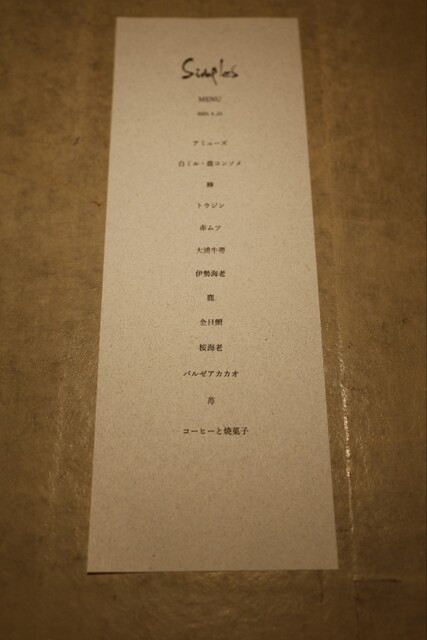 Simples
MENU
アミューズ
白ミル・鹿コンソメ
トウジン
赤ムツ
大浦牛蒡
伊勢海老
鹿
金目鯛
桜海老
バルゼアカカオ
苺
コーヒーと焼菓子